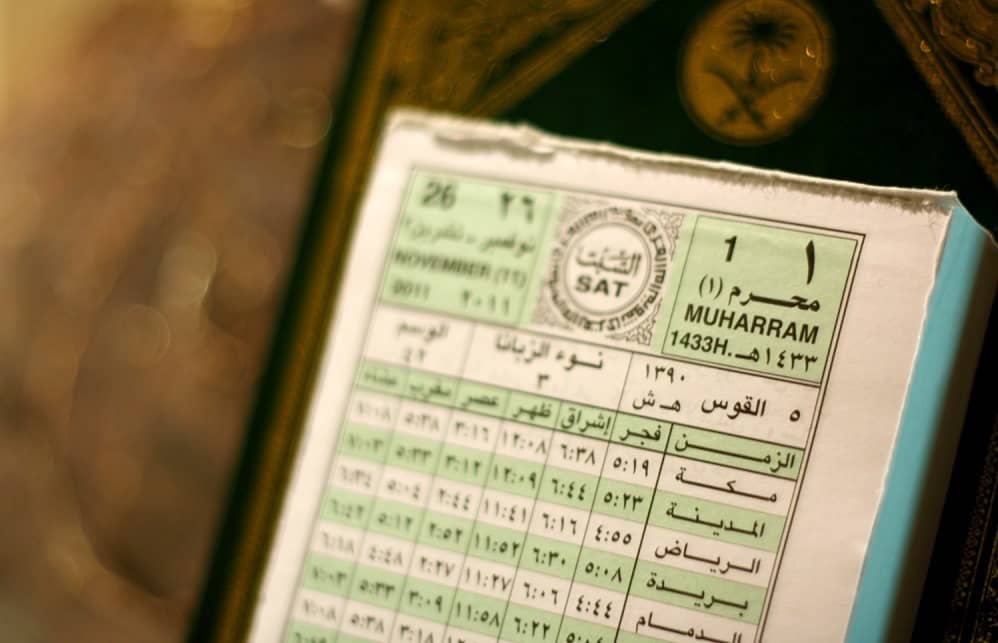 1 ١
محرم (١)
MUHARRAM
1433H. ١٤٣٣هـ
السبت
SAT
26 ٢٦
نوفمبر - تشرين٢
NOVEMBER (١١)
2011 ٢٠١١
١٣٩٠
٥ القوس هـ ش
نوء الزبانا
٣
الوسم
٤٢
الزمن فجر إشراق ظهر عصر مغرب عشاء
مكة ٥:١٩ ٦:٣٨ ١٢:٠٨ ٣:١٦ ٥:٣٨ ٧:٠٨
المدينة ٥:٢٣ ٦:٤٤ ١٢:٠٩ ٣:١٢ ٥:٣٣ ٧:٠٣
الرياض ٤:٥٥ ٦:١٦ ١١:٤١ ٢:٤٤ ٥:٠٤ ٦:٣٤
بريدة ٥:٠٨ ٦:٣٠ ١١:٥٢ ٢:٥٢ ٥:١٢ ٦:٤٢
الدمام ٤:٤٤ ٦:٠٦ ١١:٢٧ ٢:٢٧ ٤:٤٨ ٦:١٨
٦:٢٢ ١١:٥٨ ٣:٠٩ ٥:٣٣ ٧:٠٣
٣:١٨ ٥:٣٨ ٧:٠٨